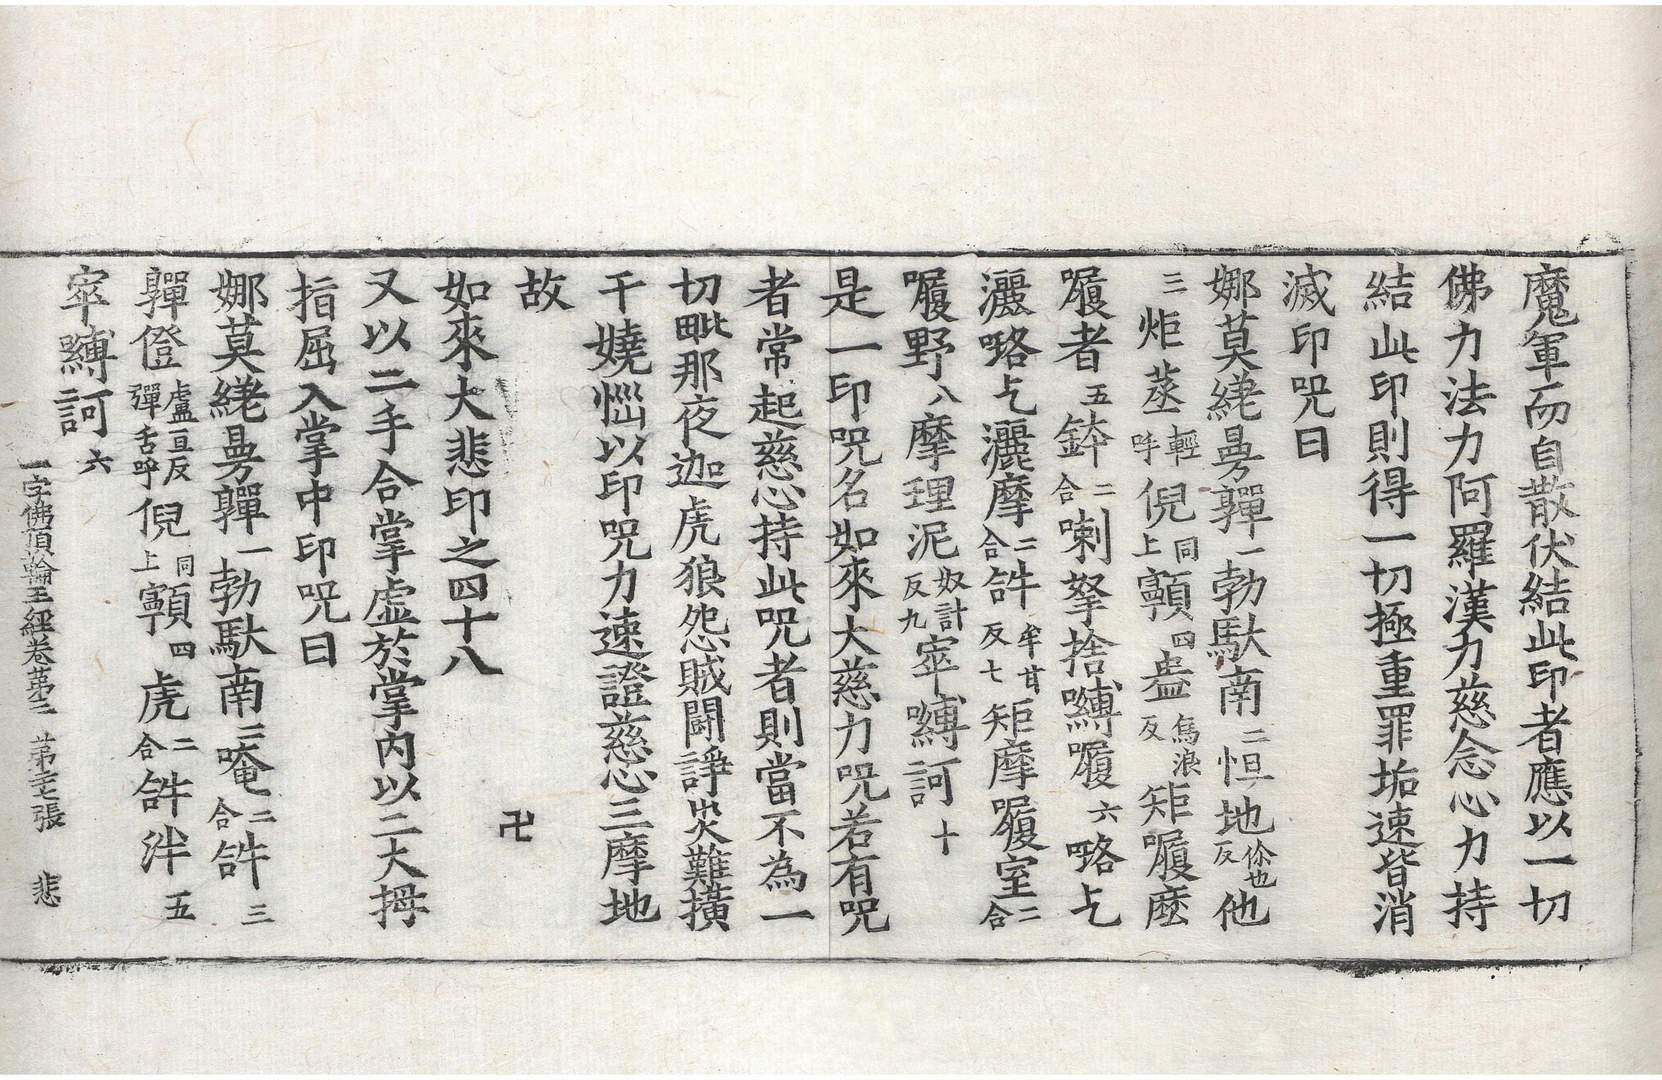 魔軍而自散伏結此印者應以一切
佛力法力阿羅漢力慈念心力持
結此印則得一切極重罪垢速皆消
滅印呪曰
娜莫繞曼鞸一勃馱南二怛地你也反他
三炬蒸輕呼倪同上顊四蓋反矩嚩麼
嚩者五鉢二合喇拏捨嚩嚩六㗚乞
灑㗚乞灑摩二合𤙖牟甘反七矩摩嚩室二合
嚩野八摩理泥奴計反九窣嚩訶十
是一印呪名如來大慈力呪若有呪
者常起慈心持此呪者則當不為一
切毗那夜迦虎狼怨賊鬪諍災難撗
干嬈惱以印呪力速證慈心三摩地
故
卍
如來大悲印之四十八
又以二手合掌虛於掌內以二大拇
指屈入掌中印呪曰
娜莫繞曼鞸一勃馱南二唵二合𤙖三
鞸僜盧亘反彈舌呼倪同上顊四虎二合𤙖泮五
窣嚩訶六
一字佛頂輪王經卷第三 第七張 悲